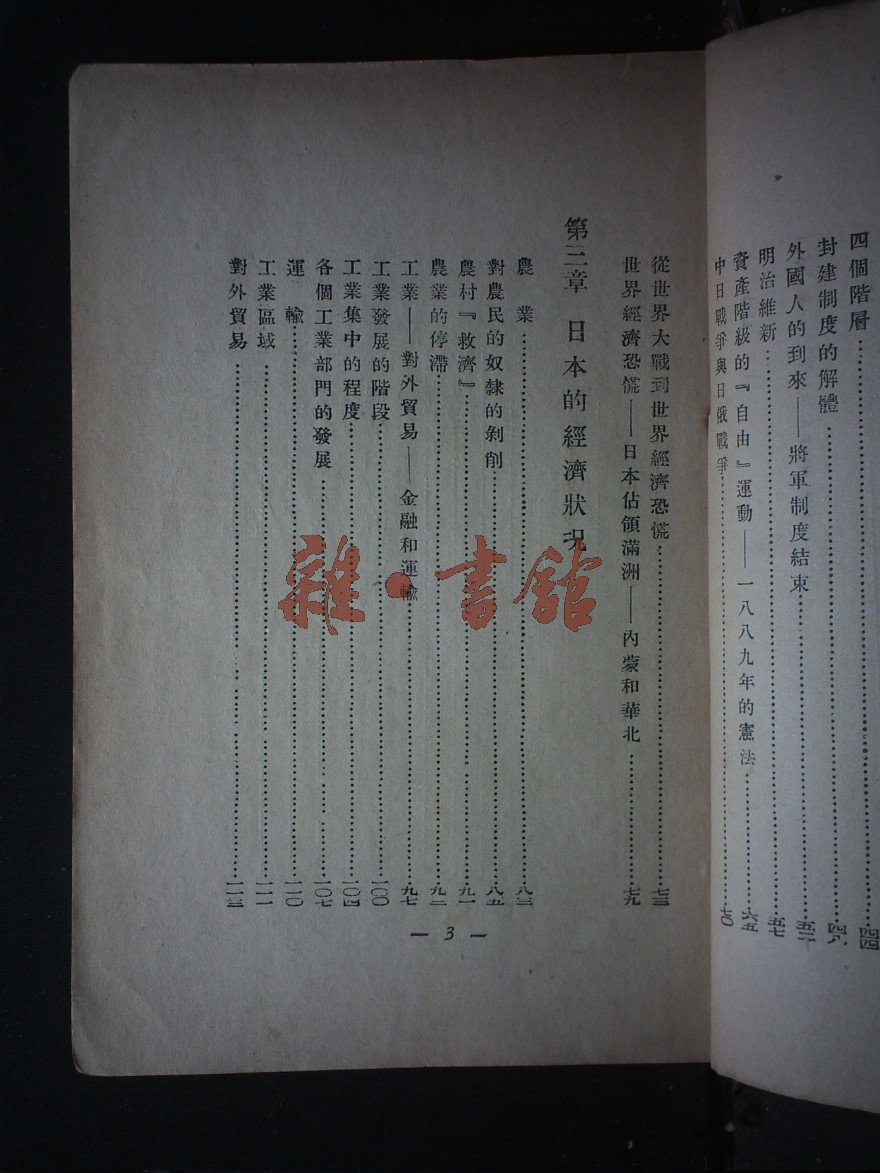 四個階層……四四
封建制度的解體……四八
外國人的到來——將軍制度結束……五二
明治維新……五七
資產階級的『自由』運動——一八八九年的憲法……六五
中日戰爭與日俄戰爭……七〇
從世界大戰到世界經濟恐慌……七三
世界經濟恐慌——日本佔領滿洲——內蒙和華北……七九
第三章 日本的經濟狀况
農業……八三
對農民的奴隸的剝削……八五
農村『救濟』……九一
農業的停滯……九二
工業——對外貿易——金融和運輸……九七
工業發展的階段……一〇〇
工業集中的程度……一〇四
各個工業部門的發展……一〇七
運輸……一一〇
工業區域……一一一
對外貿易……一一三
— 3 —
雜·書館